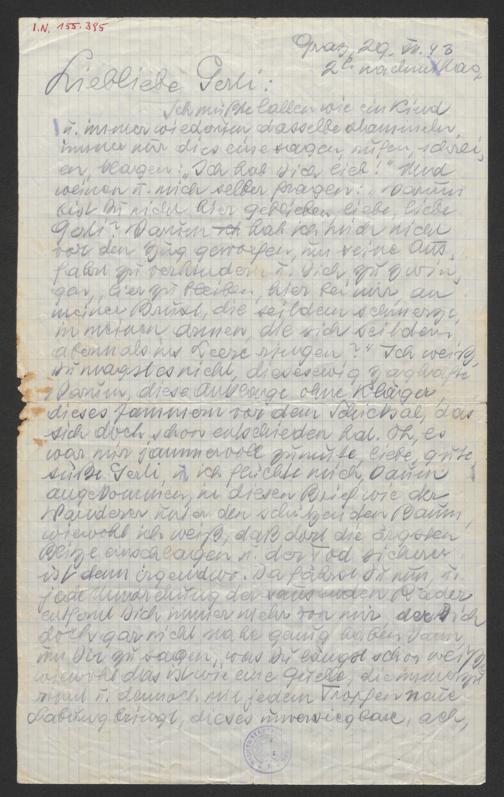 I.N. 155.395
Graz, 29. VII. 43
2h nachmittag
Liebliebe Gerli:
Ich müßte lallen wie ein Kind
u. immer wiederum dasselbe stammeln,
immer nur dies eine sagen, rufen, schrei-
en, klagen: "Ich hab Dich lieb!" Und
weinen u. mich selber fragen: "Warum
bist Du nicht hier geblieben, liebe, liebe
Gerli? Warum hab ich mich nicht
vor den Zug geworfen, um seine Aus-
fahrt zu verhindern u. Dich zu zwin-
gen, hier zu bleiben, hier bei mir, an
meiner Brust, die seitdem schmerzt,
in meinen Armen, die sich seitdem
abermals ins Leere ringen?" Ich weiß,
Du magst es nicht, dieses ewig zaghafte
Warum, diese Anklage ohne Kläger,
dieses Jammern vor dem Schicksal, das
sich doch schon entschieden hat. Oh, es
war mir jammervoll zumute, liebe, gute
süße Gerli, u. ich flüchte mich, kaum
angekommen, in diesen Brief wie der
Wanderer unter den schützenden Baum,
wiewohl ich weiß, daß dort die ärgsten
Blitze einschlagen u. der Tod sicherer
ist denn irgendwo. Da fährst Du nun, u.
jede Umdrehung der sausenden Räder
entfernt Dich immer mehr von mir, der Dich
doch gar nicht nahe genug haben kann
um Dir zu sagen, was Du längst schon weißt,
wiewohl das ist wie eine Quelle, die immerzu
rinnt u. dennoch mit jedem Tropfen neue
Labung bringt, dieses unversiegbare, ach,